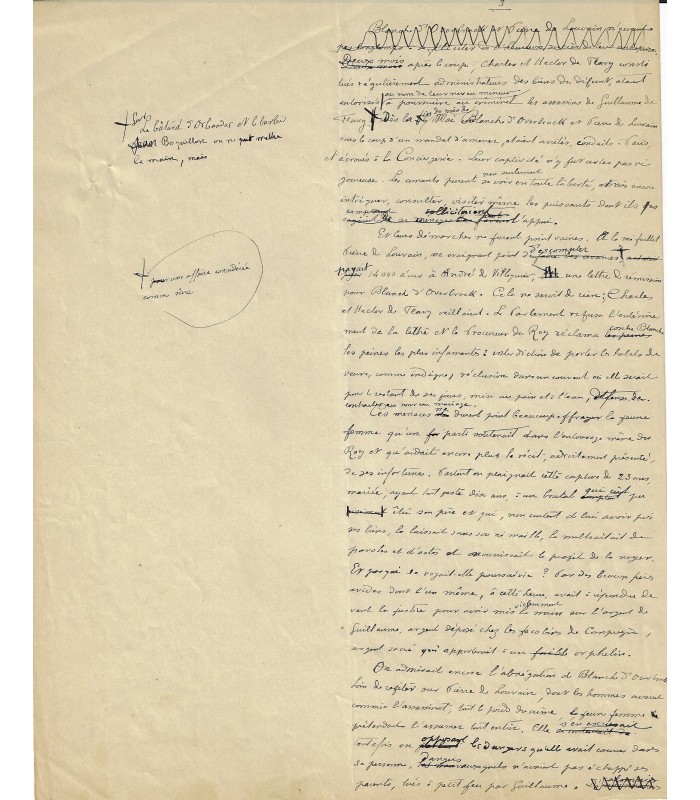 3
Blanche d'Overbreck et Pierre de Louvain n'eurent
pas longtemps
Deux mois après le coup, Charles et Hector de Flavy consti
tués régulièrement administrateurs des biens du défunt, étant
autorisés à poursuivre au criminel les assassins de Guillaume de
au nom de leur neveu mineur
Flavy. Dès la fin du mois de Mai Blanche d'Overbreck et Pierre de Louvain
sous le coup d'un mandat d'amener, étaient arrêtés, conduits à Paris,
et écroués à la Conciergerie. Leur captivité n'y fut certes pas ri-
goureuse. Les amants purent non seulement se voir en toute liberté, mais encore
intriguer, consulter, visiter même les puissants dont ils
sollicitaient l'appui.
Et leurs démarches ne furent point vaines. À la mi juillet
Pierre de Louvain, ne craignant point d'escompter
payait 14 000 écus à André de Villequier, une lettre de rémission
pour Blanche d'Overbreck. Cela ne servit de rien; Charles
et Hector de Flavy veillaient. Le Parlement refusa l'entérine
ment de la lettre et le Procureur du Roy réclama contre Blanche
les peines les plus infamantes: interdiction de porter les habits de
veuve, comme indigne, réclusion dans un couvent où elle serait
pour le restant de ses jours, mise au pain et à l'eau, défense de
contracter un nouveau mariage.
Ces menaces ne durent point beaucoup effrayer la jeune
femme qu'une parti soutenait dans l'entourage même du
Roy et qu'aidait encore plus le récit, adroitement présenté,
de ses infortunes. Partout on plaignait cette captive de 23 ans,
mariée, ayant tout juste dix ans à un brutal qui eût fait
tuer son père et qui, non content de lui avoir pris
ses biens, la laissait sans sou ni maille, la maltraitait de
paroles et d'actes et nourrissait le projet de la noyer.
Et par qui se voyait-elle poursuivie? Par des beaux frères
avides dont l'un même, à cette heure, avait à répondre de
vant la Justice pour avoir mis indûment la main sur l'argent de
Guillaume, argent déposé chez les Jacobins de Compiègne,
argent sacré qui appartenait à un faible orphelin.
On admirait encore l'abnégation de Blanche d'Overbreck
Loin de rejeter sur Pierre de Louvain, dont les hommes avaient
commis l'assassinat, tout le poids du crime, la jeune femme
prétendait l'assumer tout entier. Elle s'en excusait
toutefois en opposant les dangers qu'elle avait courus dans
sa personne, dangers auxquels n'avaient pas échappé ses
parents, tués à petit feu par Guillaume.
Le bâtard d'Orbandas et le barbier
Jean Boquillon on ne put mettre
la main, mais
pour une affaire considérée
comme sûre